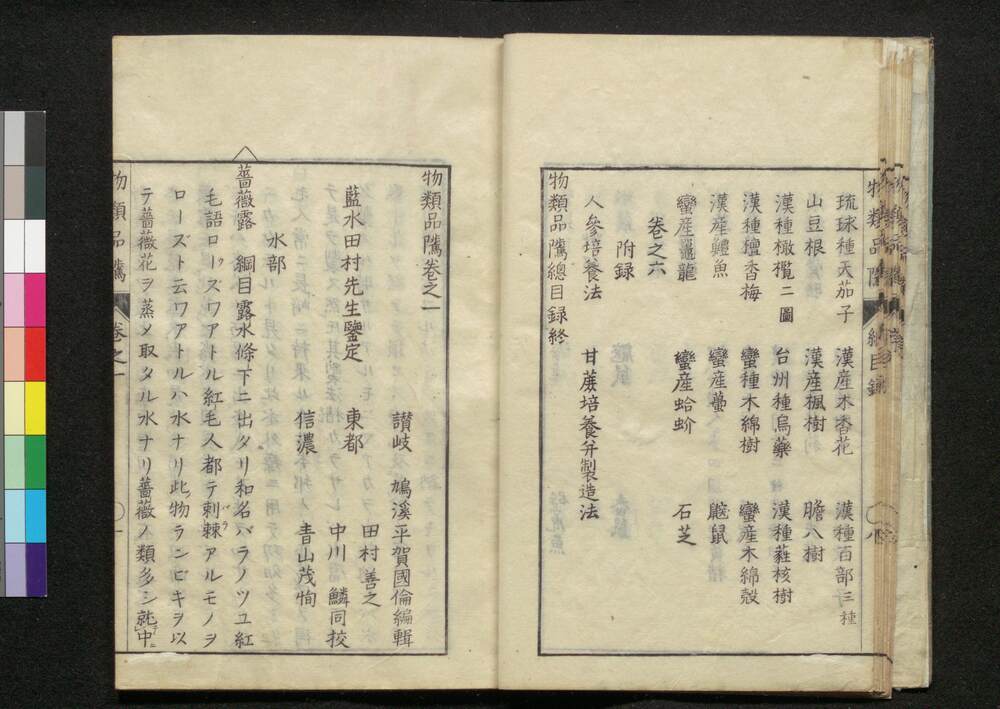 琉球種天茄子　漢産木香花　漢種百部三種
山豆根　漢産楓樹　膽八樹
漢種橄欖二圖　台州種烏藥　漢種蕤核樹
漢種檀香梅　蠻種木綿樹　蠻産木綿殻
漢産鱧魚　蠻産蛬　鼴鼠
蠻産鼉龍　蠻産蛤蚧　石芝
卷之六
附録
人參培養法　甘蔗培養并製造法
物類品隲總目録終
物類品隲卷之一
讃岐　鳩溪平賀國倫編輯
田村善之
藍水田村先生鑒定　東都
中川鱗同校
信濃　青山茂恂
水部
薔薇露　綱目露水條下ニ出タリ和名バラノツユ紅
毛語ローズワアトル紅毛人都テ刺棘アルモノヲ
ローズト云ワアトルハ水ナリ此物ランビキヲ以
テ薔薇花ヲ蒸メ取タル水ナリ薔薇ノ類多シ就中
物類品隲　卷之一　〇一